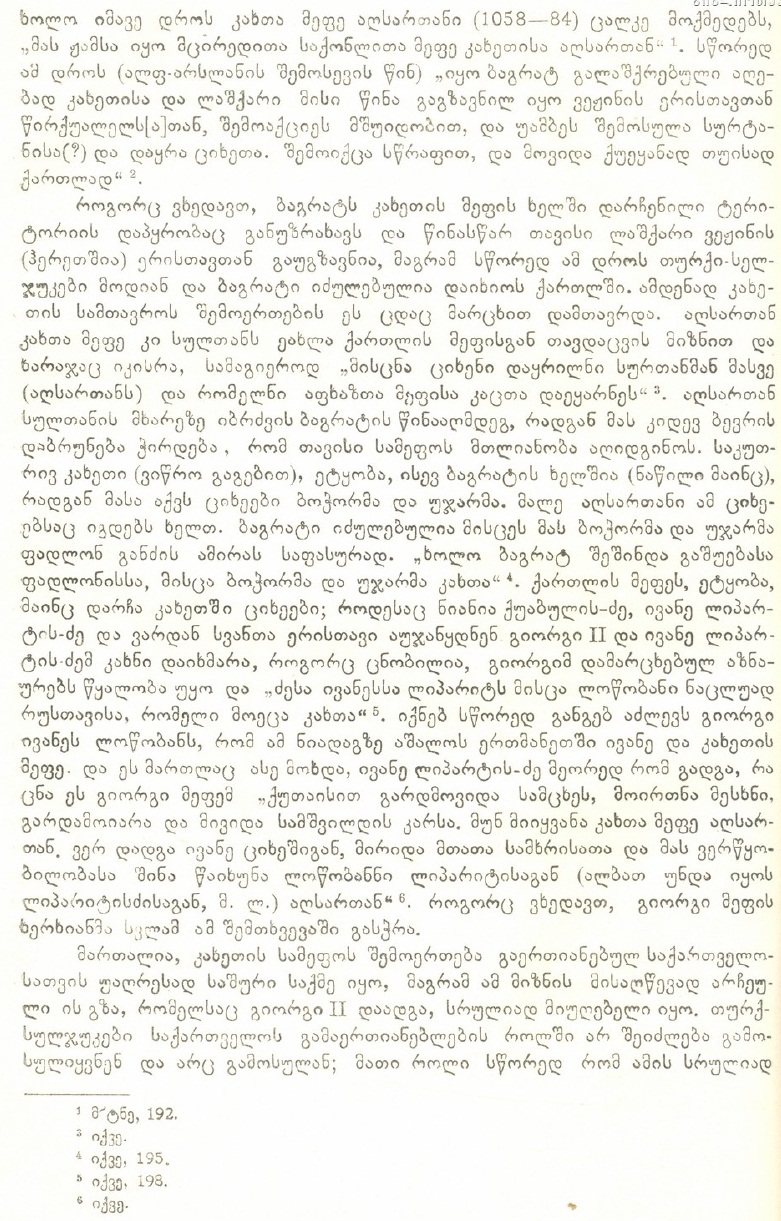 ხოლო იმავე დროს კახთა მეფე აღსართანი (1058—84) ცალკე მოქმედებს,
„მას ჟამსა იყო მცირედითა საქონლითა მეფე კახეთისა აღსართან“ ¹. სწორედ
ამ დროს (ალფ-არსლანის შემოსევის წინ) „იყო ბაგრატ გალაშქრებული აღე-
ბად კახეთისა და ლაშქარი მისი წინა გაგზავნილ იყო ვეჟინის ერისთავთან
წირქუალელს[ა]თან, შემოაქციეს მშუიდობით, და უამბეს შემოსულა სურტა-
ნისა(?) და დაყრა ციხეთა. შემოიქცა სწრაფით, და მოვიდა ქუეყანად თუისად
ქართლად“ ².
როგორც ვხედავთ, ბაგრატს კახეთის მეფის ხელში დარჩენილი ტერი-
ტორიის დაპყრობაც განუზრახავს და წინასწარ თავისი ლაშქარი ვეჟინის
(ჰერეთშია) ერისთავთან გაუგზავნია, მაგრამ სწორედ ამ დროს თურქი-სელ-
ჯუკები მოდიან და ბაგრატი იძულებულია დაიხიოს ქართლში. ამდენად კახე-
თის სამთავროს შემოერთების ეს ცდაც მარცხით დამთავრდა. აღსართან
კახთა მეფე კი სულთანს ეახლა ქართლის მეფისგან თავდაცვის მიზნით და
ხარაჯაც იკისრა, სამაგიეროდ „მისცნა ციხენი დაყრილნი სურთანმან მასვე
(აღსართანს) და რომელნი აფხაზთა მეფისა კაცთა დაეყარნეს“ ³. აღსართან
სულთანის მხარეზე იბრძვის ბაგრატის წინააღმდეგ, რადგან მას კიდევ ბევრის
დაბრუნება ჭირდება, რომ თავისი სამეფოს მთლიანობა აღიდგინოს. საკუთ-
რივ კახეთი (ვიწრო გაგებით), ეტყობა, ისევ ბაგრატის ხელშია (ნაწილი მაინც),
რადგან მასა აქვს ციხეები ბოჭორმა და უჯარმა. მალე აღსართანი ამ ციხე-
ებსაც იგდებს ხელთ. ბაგრატი იძულებულია მისცეს მას ბოჭორმა და უჯარმა
ფადლონ განძის ამირას საფასურად. „ხოლო ბაგრატ შეშინდა გაშუებასა
ფადლონისსა, მისცა ბოჭორმა და უჯარმა კახთა“ ⁴. ქართლის მეფეს, ეტყობა,
მაინც დარჩა კახეთში ციხეები; როდესაც ნიანია ქუაბულის-ძე, ივანე ლიპარ-
ტის-ძე და ვარდან სვანთა ერისთავი აუჯანყდნენ გიორგი II და ივანე ლიპარ-
ტის-ძემ კახნი დაიხმარა, როგორც ცნობილია, გიორგიმ დამარცხებულ აზნა-
ურებს წყალობა უყო და „ძესა ივანესსა ლიპარიტს მისცა ლოწობანი ნაცლუად
რუსთავისა, რომელი მოეცა კახთა“ ⁵. იქნებ სწორედ განგებ აძლევს გიორგი
ივანეს ლოწობანს, რომ ამ ნიადაგზე აშალოს ერთმანეთში ივანე და კახეთის
მეფე. და ეს მართლაც ასე მოხდა, ივანე ლიპარტის-ძე მეორედ რომ გადგა, რა
ცნა ეს გიორგი მეფემ „ქუთაისით გარდმოვიდა სამცხეს, მოირთნა მესხნი,
გარდამოიარა და მივიდა სამშვილდის კარსა. მუნ მიიყვანა კახთა მეფე აღსარ-
თან. ვერ დადგა ივანე ციხეშიგან, მირიდა მთათა სამხრისათა და მას ვერწყო-
ბილობასა შინა წაიხუნა ლოწობანნი ლიპარიტისაგან (ალბათ უნდა იყოს
ლიპარიტისძისაგან, მ. ლ.) აღსართან“ ⁶. როგორც ვხედავთ, გიორგი მეფის
ხერხიანმა სვლამ ამ შემთხვევაში გასჭრა.
მართალია, კახეთის სამეფოს შემოერთება გაერთიანებულ საქართველო-
სათვის უაღრესად საშური საქმე იყო, მაგრამ ამ მიზნის მისაღწევად არჩეუ-
ლი ის გზა, რომელსაც გიორგი II დაადგა, სრულიად მიუღებელი იყო. თურქ-
სულჯუკები საქართველოს გამაერთიანებლების როლში არ შეიძლება გამო-
სულიყვნენ და არც გამოსულან; მათი როლი სწორედ რომ ამის სრულიად
¹ მ~ტნე, 192.
³ იქვე.
⁴ იქვე, 195.
⁵ იქვე, 198.
⁶ იქვე.